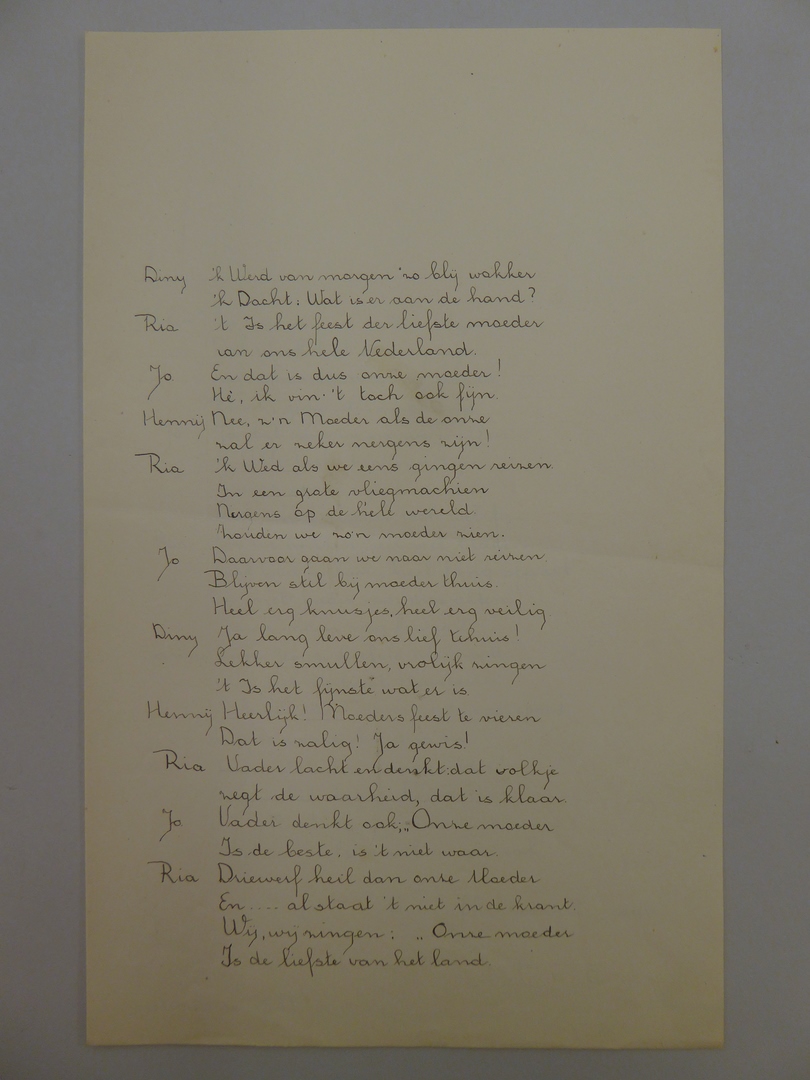 Diny 'k Werd van morgen zo blij wakker
'k Dacht: Wat is er aan de hand?
Ria 't Is het feest der liefste moeder
van ons hele Nederland.
Jo En dat is dus onze moeder!
Hè, ik vin 't toch ook fijn.
Hennij Nee, zo'n Moeder als de onze
zal er zeker nergens zijn!
Ria 'k Wed als we eens gingen reizen
In een grote vliegmachien
Nergens op de hele wereld
zouden we zo'n moeder zien.
Jo Daarvoor gaan we maar niet reizen
Blijven stil bij moeder thuis.
Heel erg knusjes, heel erg veilig
Diny Ja lang leve ons lief tehuis!
Lekker smullen, vrolijk zingen
't Is het fijnste wat er is
Hennij Heerlijk! Moeders feest te vieren
Dat is zalig! Ja gewis!
Ria Vader lacht en denkt: dat volkje
zegt de waarheid, dat is klaar.
Jo Vader denkt ook; „Onze moeder
Is de beste, is 't niet waar.
Ria Driewerf heil dan onze Moeder
En .... al staat 't niet in de krant.
Wij, wij zingen: „Onze moeder
Is de liefste van het land.